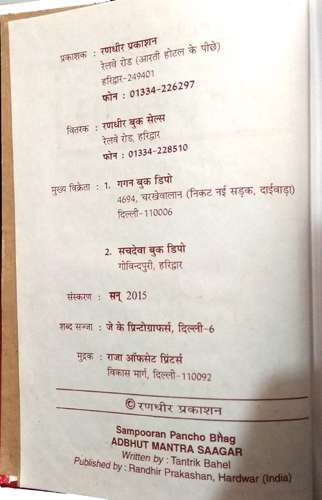 प्रकाशक : रणधीर प्रकाशन
रेलवे रोड (आरती होटल के पीछे)
हरिद्वार-249401
फोन : 01334-226297
वितरक : रणधीर बुक सेल्स
रेलवे रोड, हरिद्वार
फोन : 01334-228510
मुख्य विक्रेता : 1. गगन बुक डिपो
4694, चरखेवालान (निकट नई सड़क, दाईवाड़ा)
दिल्ली-110006
2. सचदेवा बुक डिपो
गोविन्दपुरी, हरिद्वार
संस्करण : सन् 2015
शब्द सज्जा : जे के प्रिन्टोग्राफर्स, दिल्ली-6
मुद्रक : राजा ऑफसेट प्रिंटर्स
विकास मार्ग, दिल्ली-110092
© रणधीर प्रकाशन
Sampooran Pancho Bhag
ADBHUT MANTRA SAAGAR
Written by : Tantrik Bahel
Published by : Randhir Prakashan, Hardwar (India)